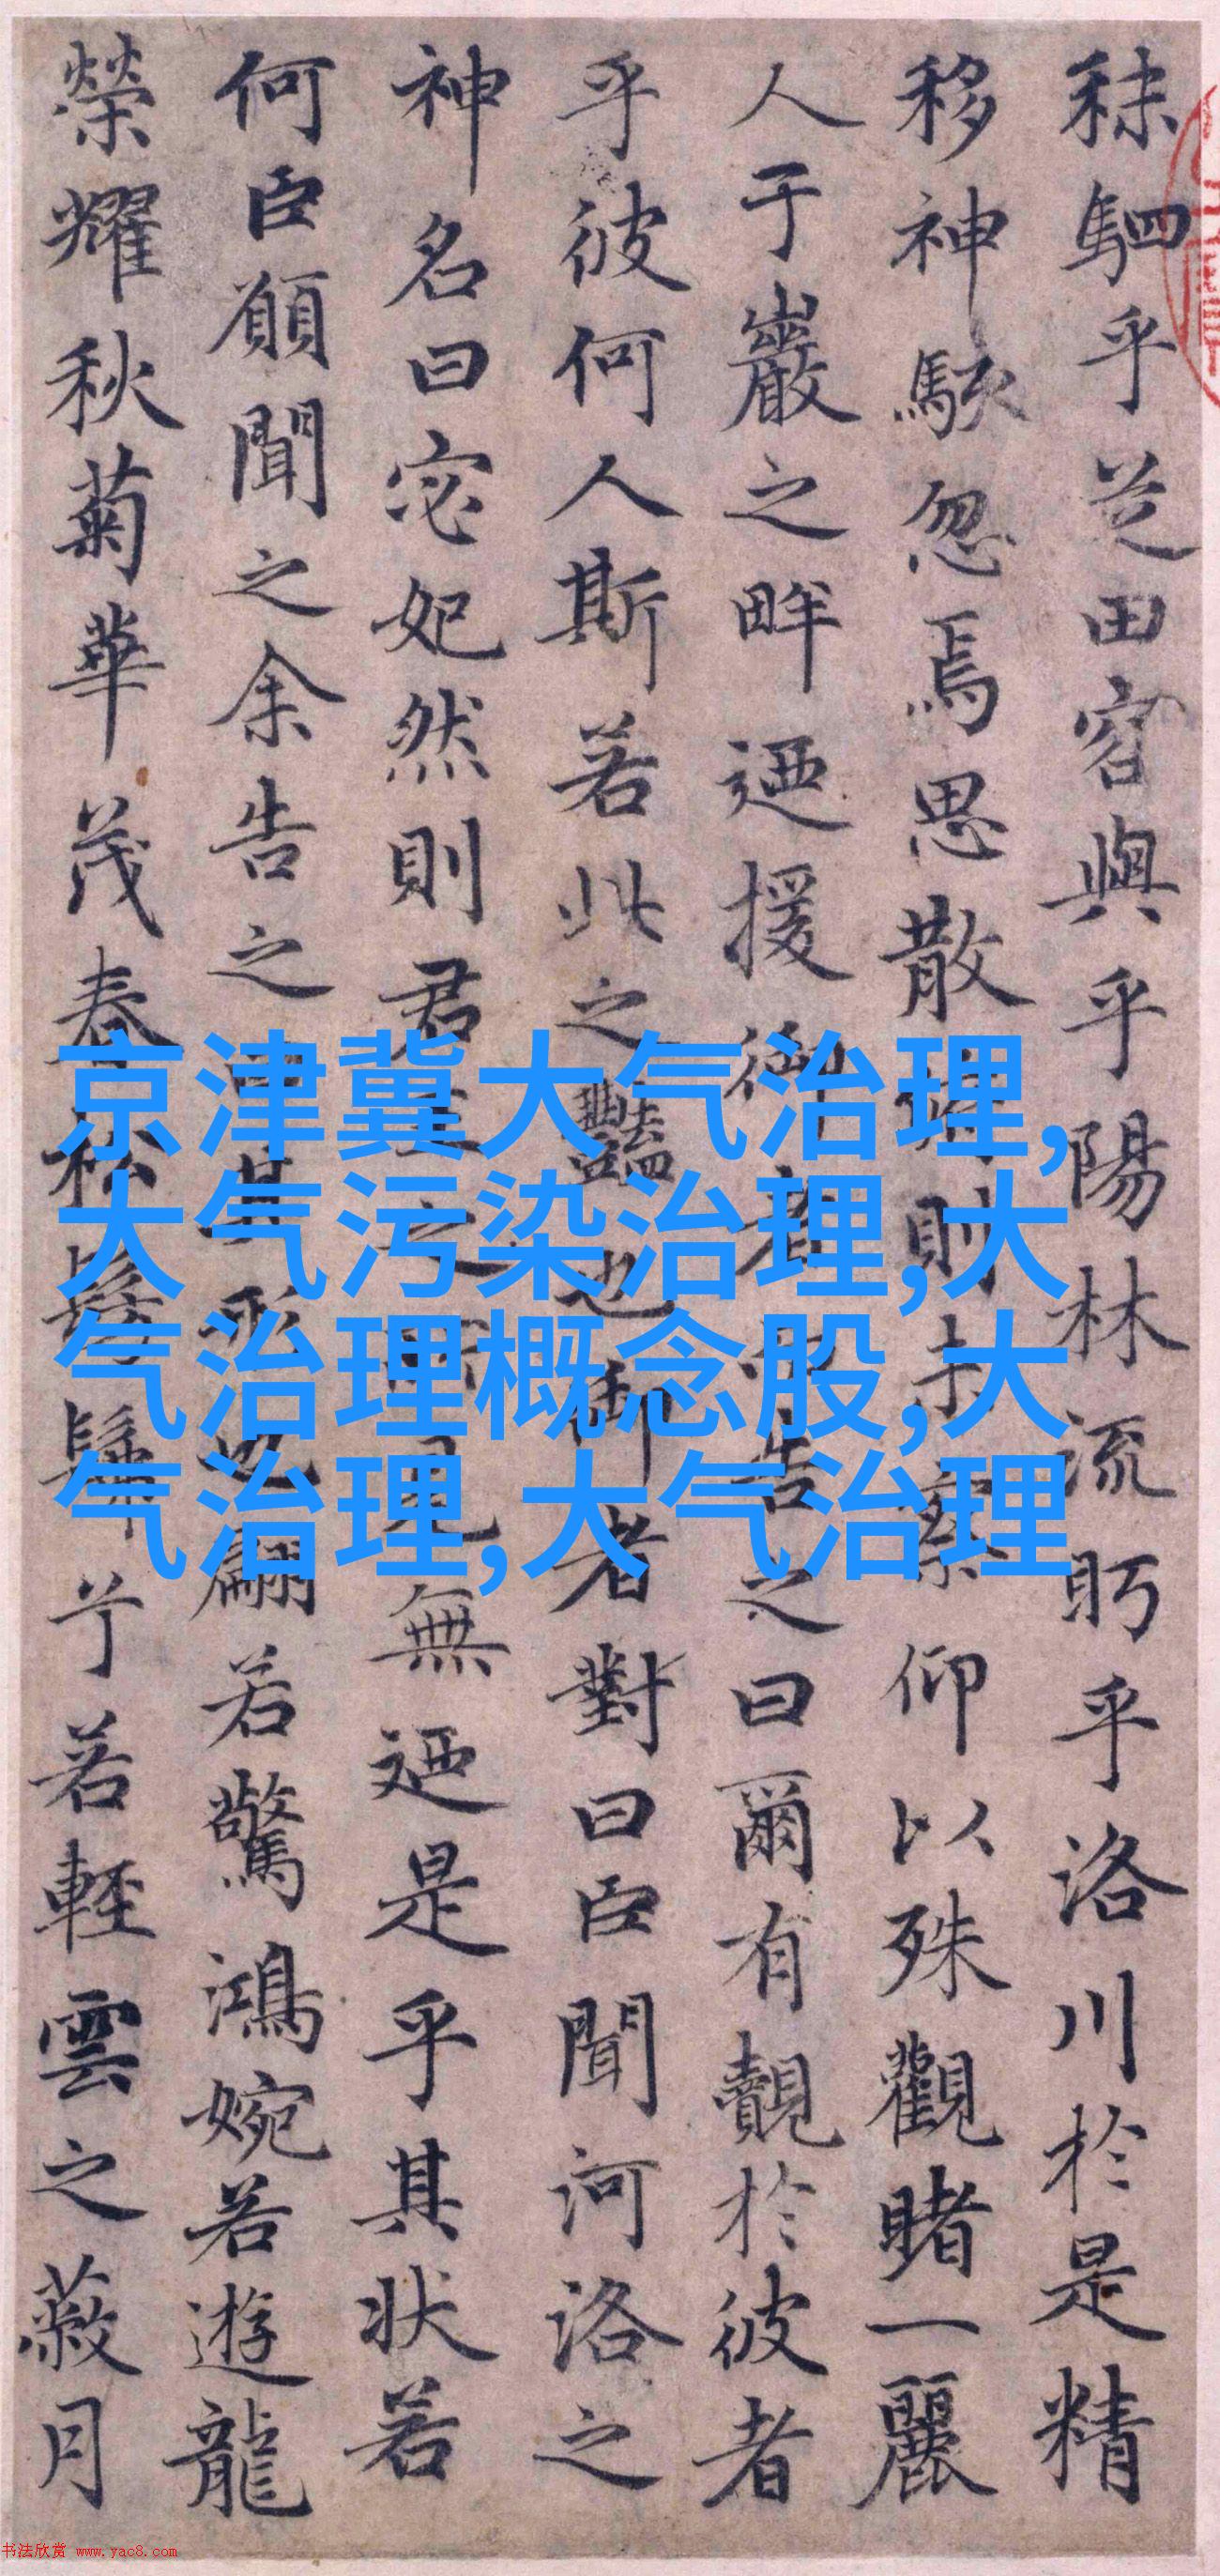 秣駟乎芝田容與乎陽林流眄乎洛川於是精
移神駭忽焉思散則未察仰以殊觀睹一麗
人于巖之畔迺援御者而告之曰爾有覿於彼者
乎彼何人斯若此之豔也御者對曰臣聞河洛之
神名曰宓妃然則君王之所見無迺是乎其狀若
何臣願聞之余告之曰其形也翩若驚鴻婉若遊龍
榮耀秋菊華茂春松髣髴兮若輕雲之蔽月
京津冀大气治理,
大气污染治理,大
气治理概念股,大
气治理,大气治理
书法欣赏 www.yac8.com